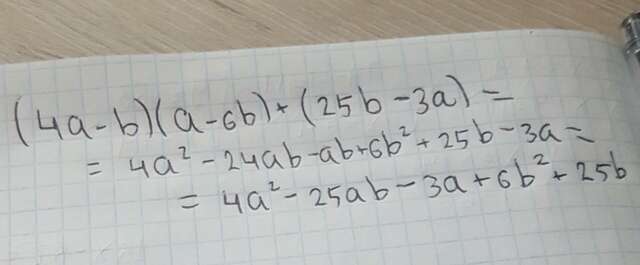 (4a-b)(a-6b)+(25b-3a)=
=4a²-24ab-ab+6b²+25b-3a=
=4a²-25ab-3a+6b²+25b